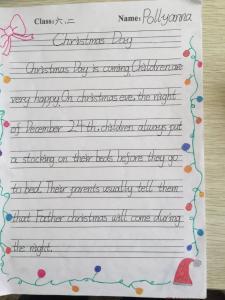 Class: 六.二 Name: Pollyanna
Christmas Day
Christmas Day is coming. Children are
very happy. On christmas eve, the night
of December 24th, children always put
a stocking on their beds before they go
to bed. Their parents usually tell them
that Father christmas will come during
the night.